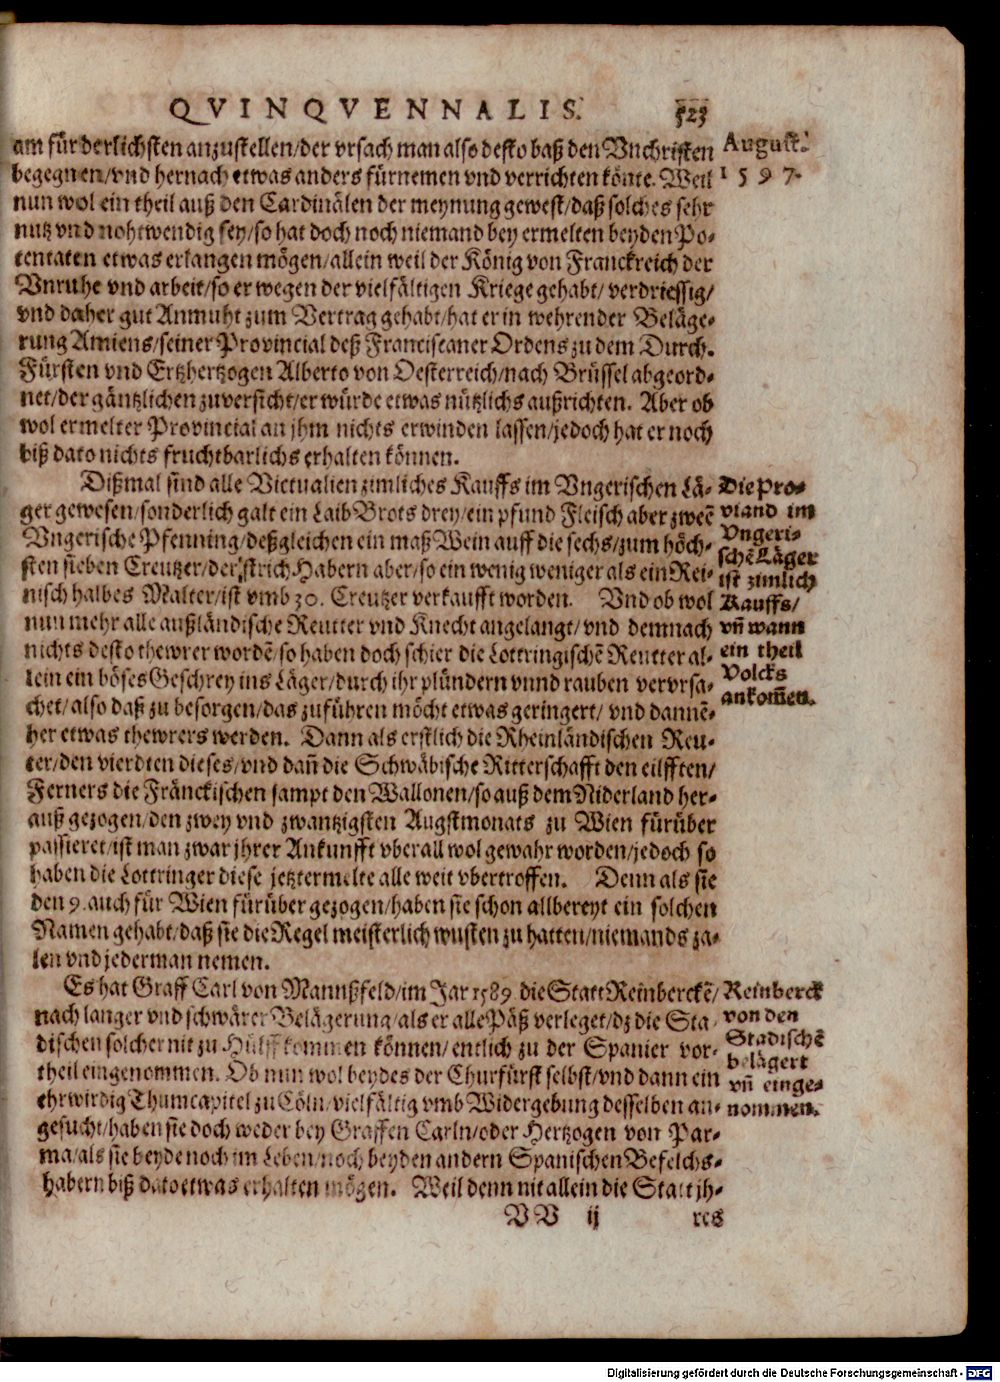 QVINQVENNALIS. 523
am fürderlichsten anzustellen/der vrsach man also desto baß den Vnchristen
begegnen/vnd hernach etwas anders fürnemen vnd verrichten könte. Weil
nun wol ein theil auß den Cardinälen der meynung gewest/daß solches sehr
nutz vnd nohtwendig sey/so hat doch noch niemand bey ermelten beyden Po-
tentaten etwas erlangen mögen/allein weil der König von Franckreich der
Vnruhe vnd arbeit/so er wegen der vielfältigen Kriege gehabt/verdriessig/
vnd daher gut Anmuht zum Vertrag gehabt/hat er in wehrender Beläge-
rung Amiens/seiner Provincial deß Franciscaner Ordens zu dem Durch.
Fürsten vnd Ertzhertzogen Alberto von Oesterreich/nach Brüssel abgeord-
net/der gäntzlichen zuversicht/er würde etwas nützlichs außrichten. Aber ob
wol ermelter Provincial an jhm nichts erwinden lassen/jedoch hat er noch
biß dato nichts fruchtbarlichs erhalten können.
August.
1597.
Dißmal sind alle Victualien zimliches Kauffs im Vngerischen Lä-
ger gewesen/sonderlich galt ein Laib Brots drey/ein pfund Fleisch aber zweē
Vngerische Pfenning/deßgleichen ein maß Wein auff die sechs/zum höch-
sten sieben Creutzer/der strich Habern aber/so ein wenig weniger als ein Rei-
nisch halbes Malter/ist vmb 30. Creutzer verkaufft worden. Vnd ob wol
nun mehr alle außländische Reutter vnd Knecht angelangt/vnd demnach
nichts desto thewrer wordē/so haben doch schier die Lottringischē Reutter al-
lein ein böses Geschrey ins Läger/durch ihr plündern vnnd rauben vervrsa-
chet/also daß zu besorgen/das zuführen möcht etwas geringert/vnd dannē-
her etwas thewrers werden. Dann als erstlich die Rheinländischen Reu-
ter/den vierdten dieses/vnd dañ die Schwäbische Ritterschafft den eilfften/
Ferners die Fränckischen sampt den Wallonen/so auß dem Niderland her-
auß gezogen/den zwey vnd zwantzigsten Augstmonats zu Wien fürüber
passieret/ist man zwar jhrer Ankunfft vberall wol gewahr worden/jedoch so
haben die Lottringer diese jetztermelte alle weit vbertroffen. Denn als sie
den 9. auch für Wien fürüber gezogen/haben sie schon allbereyt ein solchen
Namen gehabt/daß sie die Regel meisterlich wusten zu halten/niemands za-
len vnd jederman nemen.
Die Pro-
viand im
Vngeri-
schē Läger
ist zimlich
Kauffs/
vñ wann
ein theil
Volcks
ankom̃en.
Es hat Graff Carl von Mannßfeld/im Jar 1589 die Statt Reinberckē/
nach langer vnd schwärer Belägerung/als er alle Päß verleget/dz die Sta-
dischen solcher nit zu Hülff kommen können/entlich zu der Spanier vor-
theil eingenommen. Ob nun wol beydes der Churfürst selbst/vnd dann ein
ehrwirdig Thumcapitel zu Cöln/vielfältig vmb Widergebung desselben an-
gesucht/haben sie doch weder bey Graffen Carln/oder Hertzogen von Par-
ma/als sie beyde noch im Leben/noch beyden andern Spanischen Befelchs-
habern biß dato etwas erhalten mögen. Weil denn nit allein die Statt jh-
Reinberck
von den
Stadischē
belägert
vñ einge-
nommen.
VV ij res
Digitalisierung gefördert durch die Deutsche Forschungsgemeinschaft - DFG